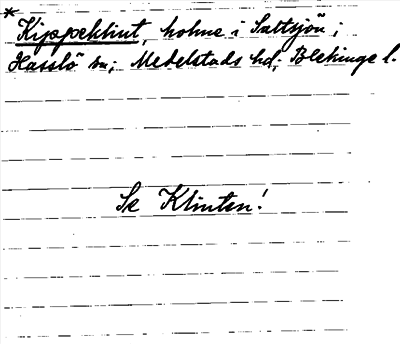 *
Kippeklint, holme i Saltsjön;
Hasslö sn; Medelstads hd; Blekinge l.
Se Klinten!